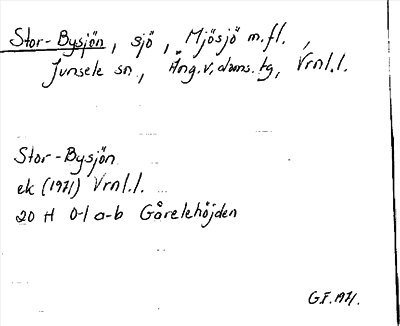 Stor-Bysjön, sjö, Mjösjö m.fl.,
Junsele sn., Ång.v. doms. tg, Vrnl.l.
Stor-Bysjön
ek (1971) Vrnl.l.
20 H 0-1 a-b Gårelehöjden
G.F. 1971.